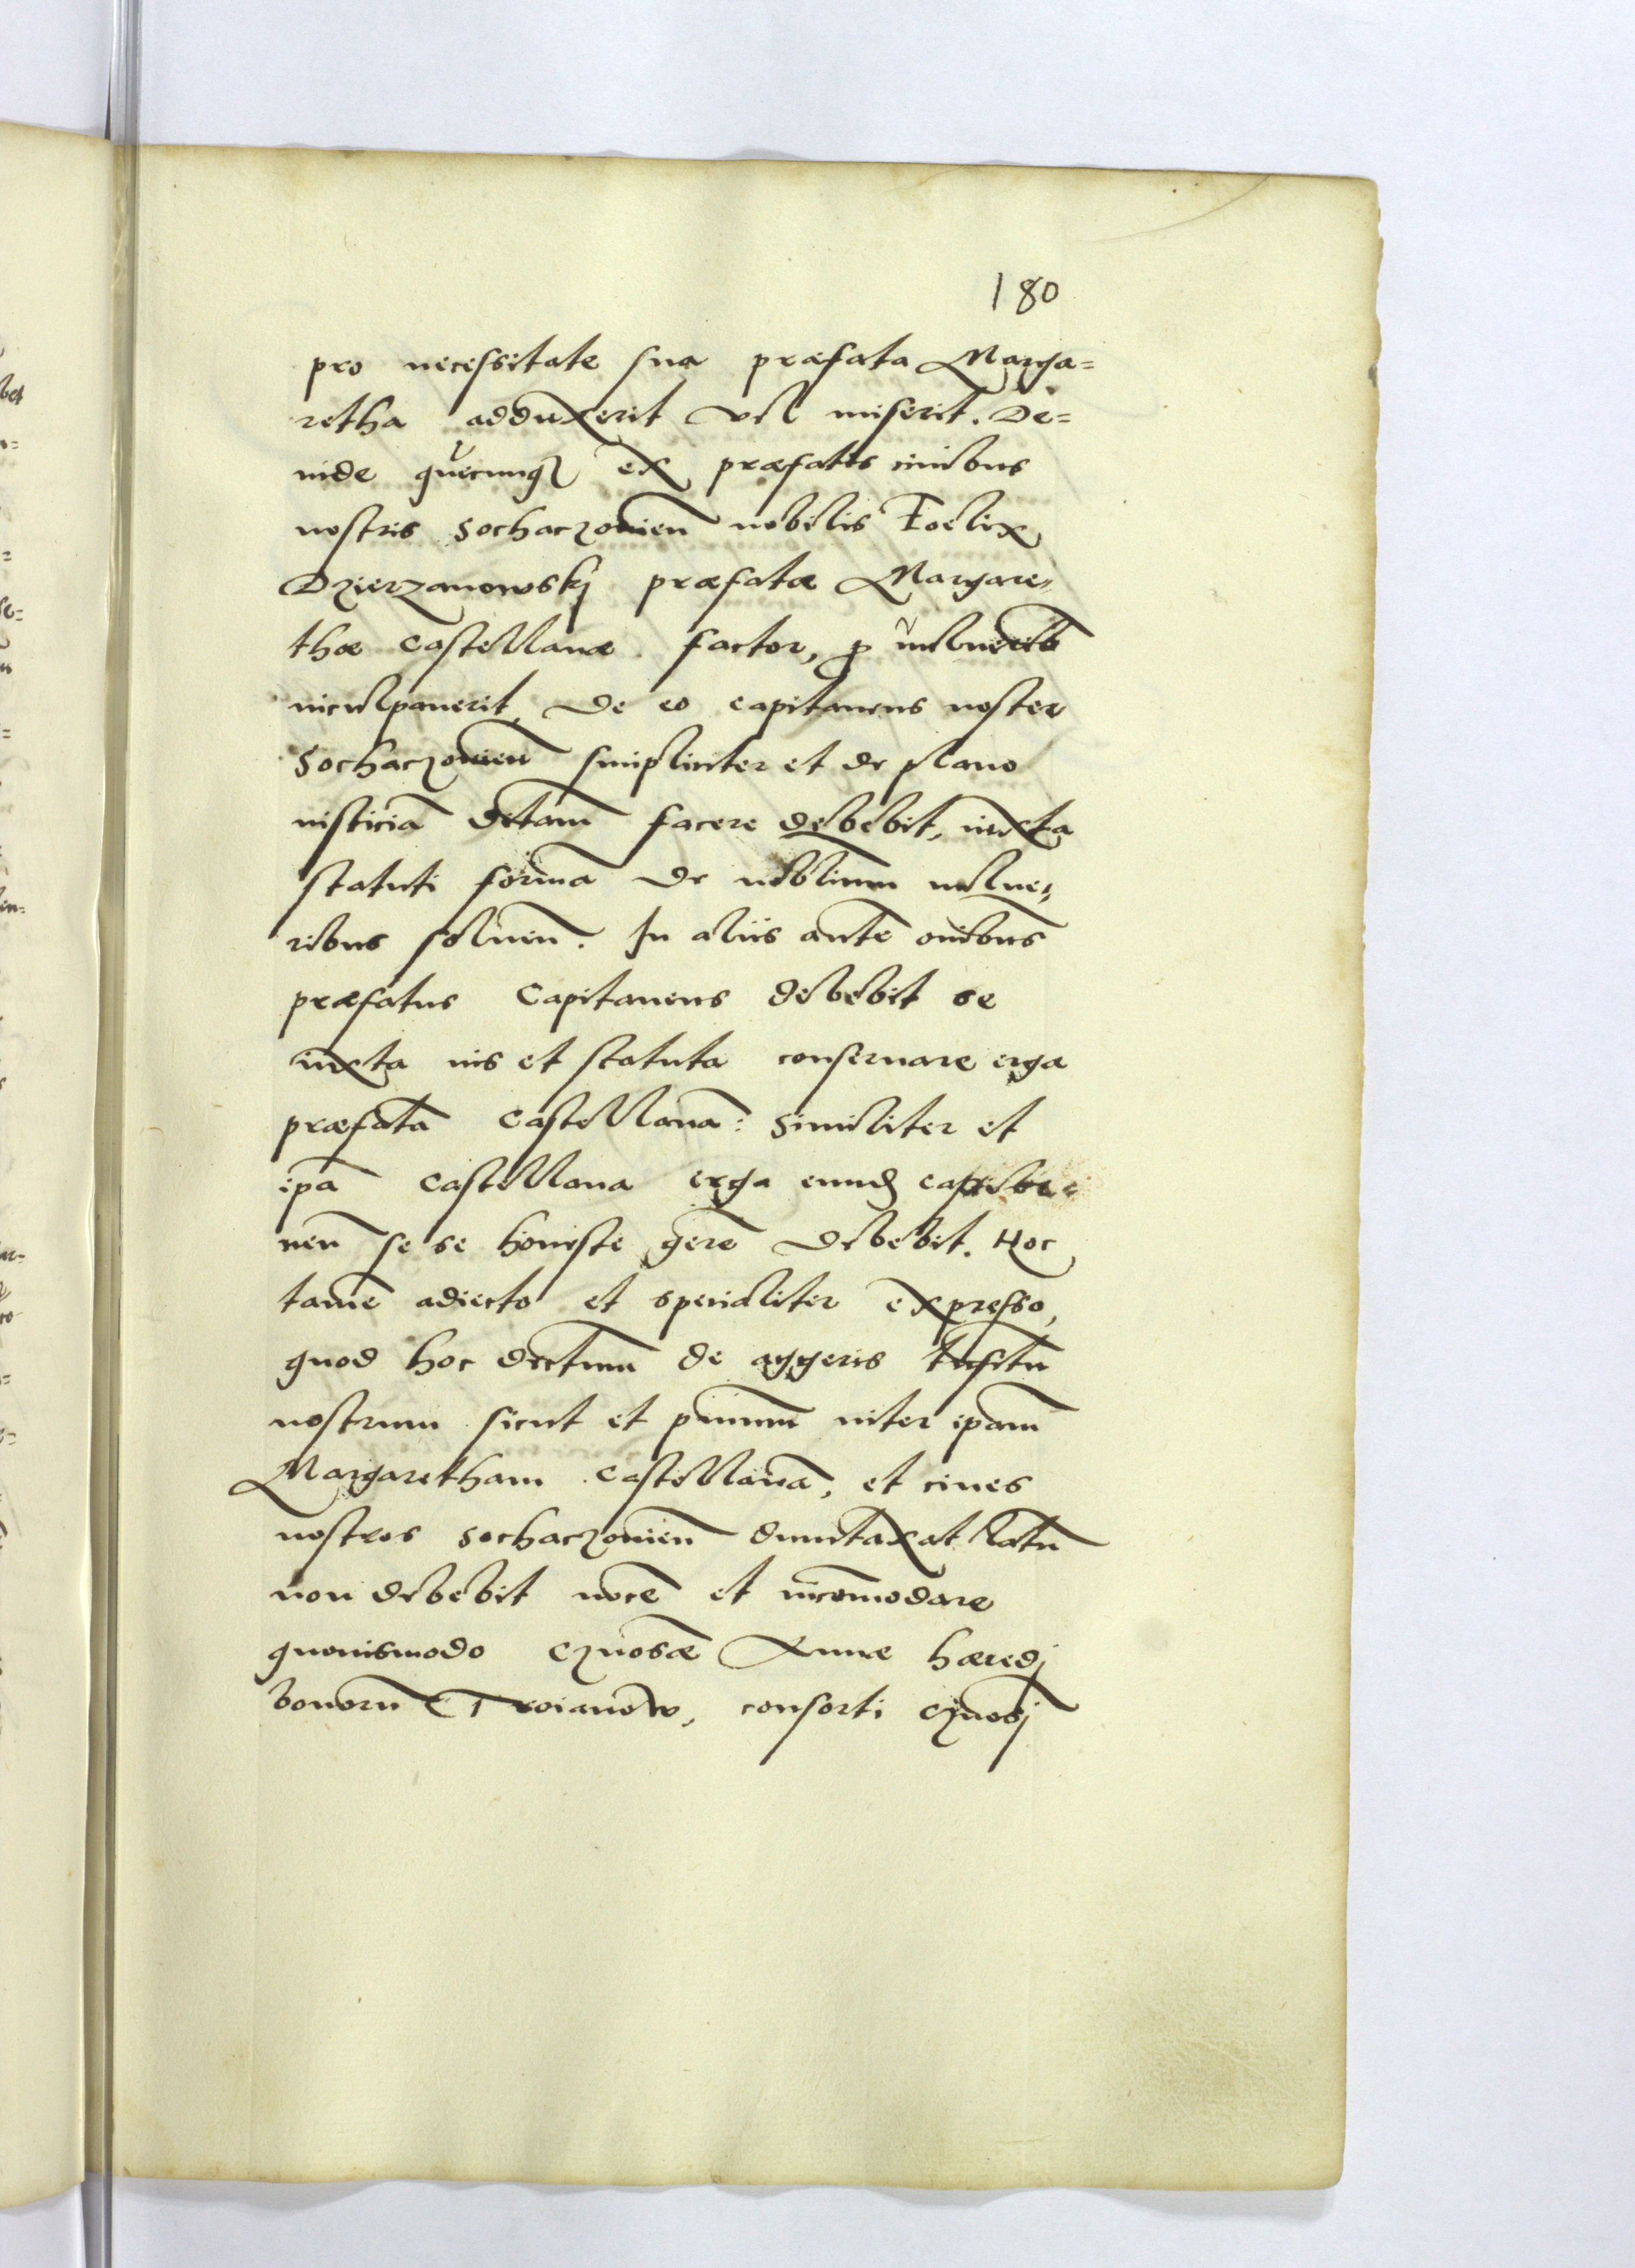 180
pro necessitate sua præfata Marga=
retha adduxerit vel miserit. De=
inde quecunq3 ex præfatis ciuibus
nostris Sochaczouien̄ nobilis Foelix
Dzierzanowskj præfatæ Margare=
thæ Castellanæ factor, ꝓ vulnerib
inculpauerit, de eo capitaneus noster
Sochaczouien̄ simplicter et de plano
iusticiā dctam̄ facere debebit, iuxta
statuti formā de nobilium vulne=
ribus soluen̄. In aliis autē om̄ibus
præfatus Capitaneus debebit se
iuxta ius et statuta conseruare erga
præfatā Castellanā: Similiter et
ipā Castellana erga eund
neū se se honeste gerē debebit. Hoc
tamē adiecto et specialiter expresso,
quod hoc decretum̄ de aggeris
nostrum sicut et primum inter ipam̄
Margaretham Castellanā, et ciues
nostros Sochaczouien̄ duntaxat latū
non debebit nocē et incōmodare
quouismodo Annæ hæredj
bonorū Troianow, consorti